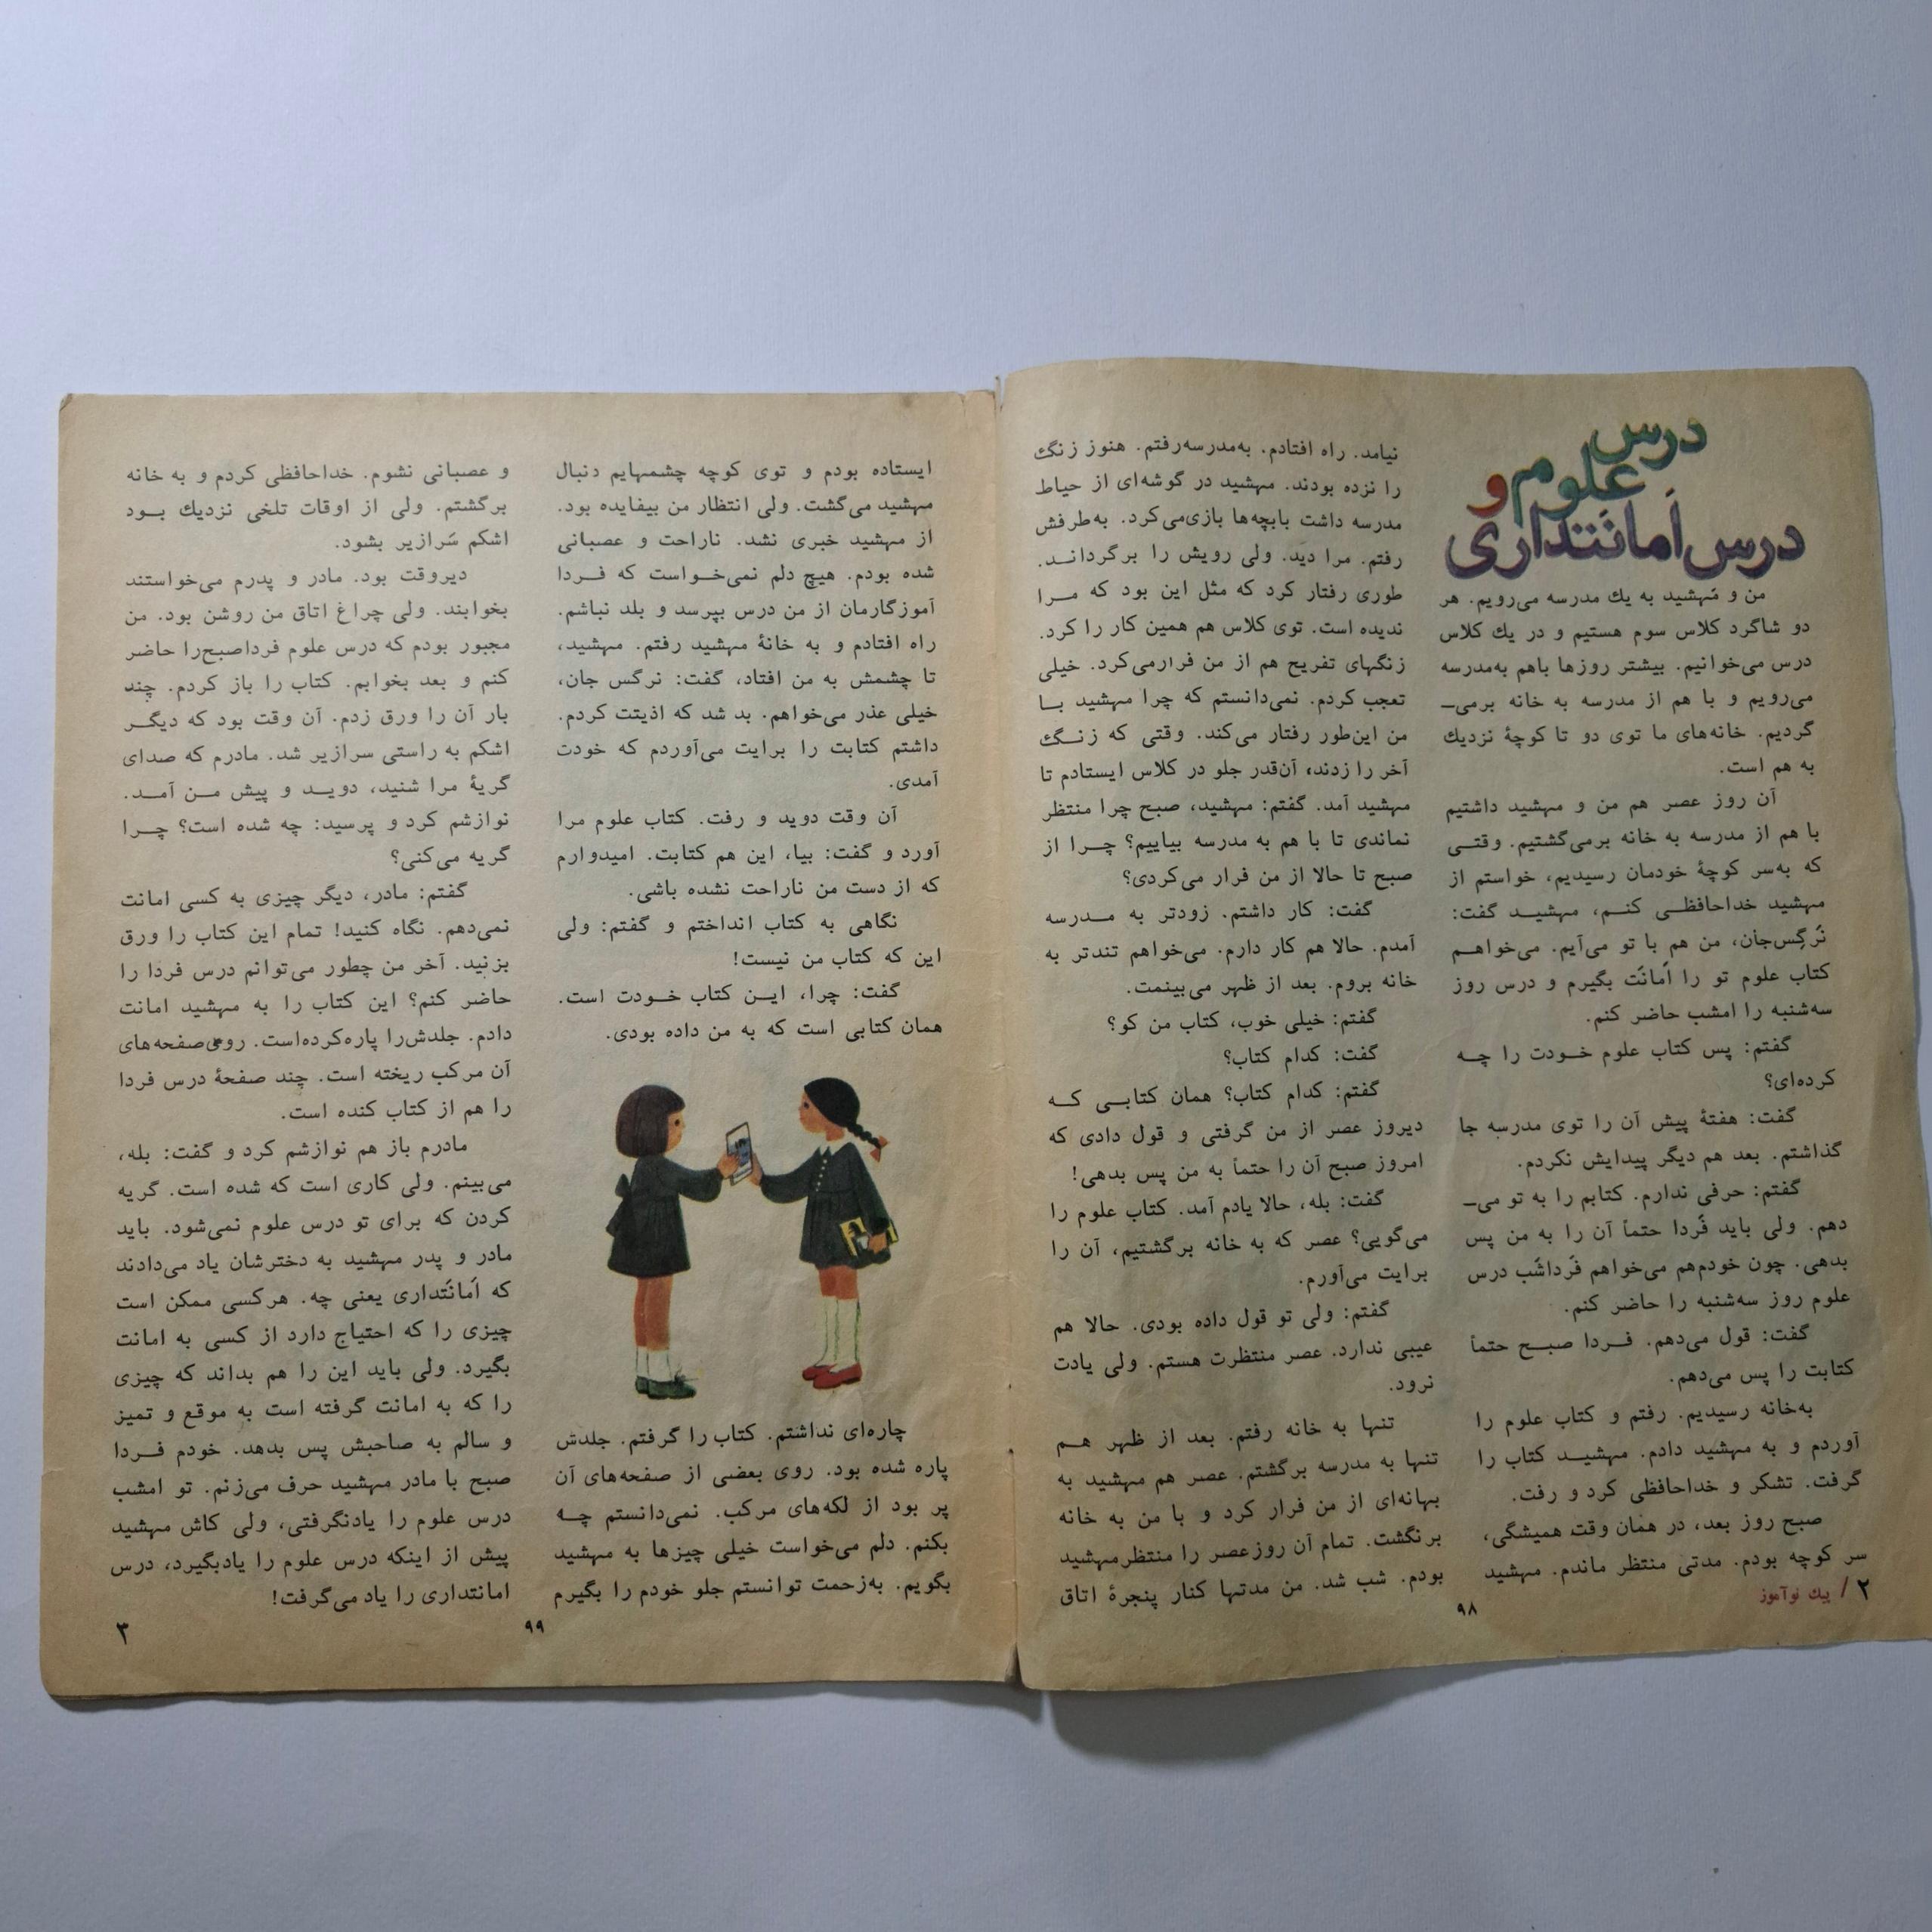 درس
علوم و
درس اَمانَتداری
من و مَهشید به یك مدرسه می‌رویم. هر
دو شاگرد کلاس سوم هستیم و در یك کلاس
درس می‌خوانیم. بیشتر روزها باهم به‌مدرسه
می‌رویم و با هم از مدرسه به خانه برمی‌ـ
گردیم. خانه‌های ما توی دو تا کوچهٔ نزدیك
به هم است.
آن روز عصر هم من و مهشید داشتیم
با هم از مدرسه به خانه برمی‌گشتیم. وقتـی
که به‌سر کوچهٔ خودمان رسیدیم، خواستم از
مهشید خداحافظـی کنـم، مهشیـد گفت:
نَرگِس‌جان، من هم با تو می‌آیم. می‌خواهـم
کتاب علوم تو را اَمانَت بگیرم و درس روز
سه‌شنبه را امشب حاضر کنم.
گفتم: پس کتاب علوم خـودت را چـه
کرده‌ای؟
گفت: هفتهٔ پیش آن را توی مدرسه جا
گذاشتم. بعد هم دیگر پیدایش نکردم.
گفتم: حرفی ندارم. کتابم را به تو می‌ـ
دهم. ولی باید فَردا حتماً آن را به من پس
بدهی. چون خودم‌هم می‌خواهم فَرداشَب درس
علوم روز سه‌شنبه را حاضر کنم.
گفت: قول می‌دهم. فـردا صبـح حتماً
کتابت را پس می‌دهم.
به‌خانه رسیدیم. رفتم و کتاب علوم را
آوردم و به مهشید دادم. مهشیـد کتاب را
گرفت. تشکر و خداحافظی کرد و رفت.
صبح روز بعد، در همان وقت همیشگی،
سر کوچه بودم. مدتی منتظر ماندم. مهشید
۲ / پیك نوآموز
۹۸
نیامد. راه افتادم. به‌مدرسه‌رفتم. هنوز زنگ
را نزده بودند. مهشید در گوشه‌ای از حیاط
مدرسه داشت بابچه‌ها بازی‌می‌کرد. به‌طرفش
رفتم. مرا دید. ولی رویش را برگردانـد.
طوری رفتار کرد که مثل این بود که مـرا
ندیده است. توی کلاس هم همین کار را کرد.
زنگهای تفریح هم از من فرارمی‌کرد. خیلی
تعجب کردم. نمی‌دانستم که چرا مهشید بـا
من این‌طور رفتار می‌کند. وقتی که زنـگ
آخر را زدند، آن‌قدر جلو در کلاس ایستادم تا
مهشید آمد. گفتم: مهشید، صبح چرا منتظر
نماندی تا با هم به مدرسه بیاییم؟ چـرا از
صبح تا حالا از من فرار می‌کردی؟
گفت: کار داشتم. زودتر به مـدرسه
آمدم. حالا هم کار دارم. می‌خواهم تندتر به
خانه بروم. بعد از ظهر می‌بینمت.
گفتم: خیلی خوب، کتاب من کو؟
گفت: کدام کتاب؟
گفتم: کدام کتاب؟ همان کتابـی کـه
دیروز عصر از من گرفتی و قول دادی که
امروز صبح آن را حتماً به من پس بدهی!
گفت: بله، حالا یادم آمد. کتاب علوم را
می‌گویی؟ عصر که به خانه برگشتیم، آن را
برایت می‌آورم.
گفتم: ولی تو قول داده بودی. حالا هم
عیبی ندارد. عصر منتظرت هستم. ولی یادت
نرود.
تنها به خانه رفتم. بعد از ظهر هـم
تنها به مدرسه برگشتم. عصر هم مهشید به
بهانه‌ای از من فرار کرد و با من به خانه
برنگشت. تمام آن روزعصر را منتظرمهشید
بودم. شب شد. من مدتها کنار پنجرهٔ اتاق
ایستاده بودم و توی کوچه چشمهایم دنبال
مهشید می‌گشت. ولی انتظار من بیفایده بود.
از مهشید خبری نشد. ناراحت و عصبانی
شده بودم. هیچ دلم نمی‌خـواست که فـردا
آموزگارمان از من درس بپرسد و بلد نباشم.
راه افتادم و به خانهٔ مهشید رفتم. مهشید،
تا چشمش به من افتاد، گفت: نرگس جان،
خیلی عذر می‌خواهم. بد شد که اذیتت کردم.
داشتم کتابت را برایت می‌آوردم که خودت
آمدی.
آن وقت دوید و رفت. کتاب علوم مرا
آورد و گفت: بیا، این هم کتابت. امیدوارم
که از دست من ناراحت نشده باشی.
نگاهی به کتاب انداختم و گفتم: ولی
این که کتاب من نیست!
گفت: چرا، ایـن کتاب خـودت است.
همان کتابی است که به من داده بودی.
چاره‌ای نداشتم. کتاب را گرفتم. جلدش
پاره شده بود. روی بعضی از صفحه‌های آن
پر بود از لکه‌های مرکب. نمی‌دانستم چـه
بکنم. دلم می‌خواست خیلی چیزها به مهشید
بگویم. به‌زحمت توانستم جلو خودم را بگیرم
۹۹
و عصبانی نشوم. خداحافظی کردم و به خانه
برگشتم. ولی از اوقات تلخی نزدیك بـود
اشکم سَرازیر بشود.
دیروقت بود. مادر و پدرم می‌خواستند
بخوابند. ولی چراغ اتاق من روشن بود. من
مجبور بودم که درس علوم فرداصبح‌را حاضر
کنم و بعد بخوابم. کتاب را باز کردم. چند
بار آن را ورق زدم. آن وقت بود که دیگـر
اشکم به راستی سرازیر شد. مادرم که صدای
گریهٔ مرا شنید، دویـد و پیش مـن آمـد.
نوازشم کرد و پرسید: چه شده است؟ چـرا
گریه می‌کنی؟
گفتم: مادر، دیگر چیزی به کسی امانت
نمی‌دهم. نگاه کنید! تمام این کتاب را ورق
بزنید. آخر من چطور می‌توانم درس فردا را
حاضر کنم؟ این کتاب را به مهشید امانت
دادم. جلدش‌را پاره‌کرده‌است. روی‌صفحه‌های
آن مرکب ریخته است. چند صفحهٔ درس فردا
را هم از کتاب کنده است.
مادرم باز هم نوازشم کرد و گفت: بله،
می‌بینم. ولی کاری است که شده است. گریه
کردن که برای تو درس علوم نمی‌شود. باید
مادر و پدر مهشید به دخترشان یاد می‌دادند
که اَمانَتداری یعنی چه. هرکسی ممکن است
چیزی را که احتیاج دارد از کسی به امانت
بگیرد. ولی باید این را هم بداند که چیزی
را که به امانت گرفته است به موقع و تمیز
و سالم به صاحبش پس بدهد. خودم فـردا
صبح با مادر مهشید حرف می‌زنم. تو امشب
درس علوم را یادنگرفتی، ولی کاش مهشید
پیش از اینکه درس علوم را یادبگیرد، درس
امانتداری را یاد می‌گرفت!
۳